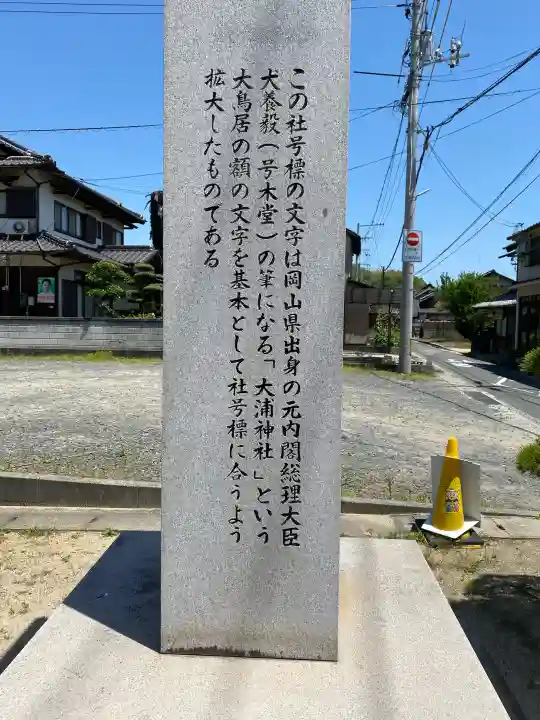 この社号標の文字は岡山県出身の元内閣総理大臣
犬養毅（号木堂）の筆になる「大浦神社」という
大鳥居の額の文字を基本として社号標に合うよう
拡大したものである